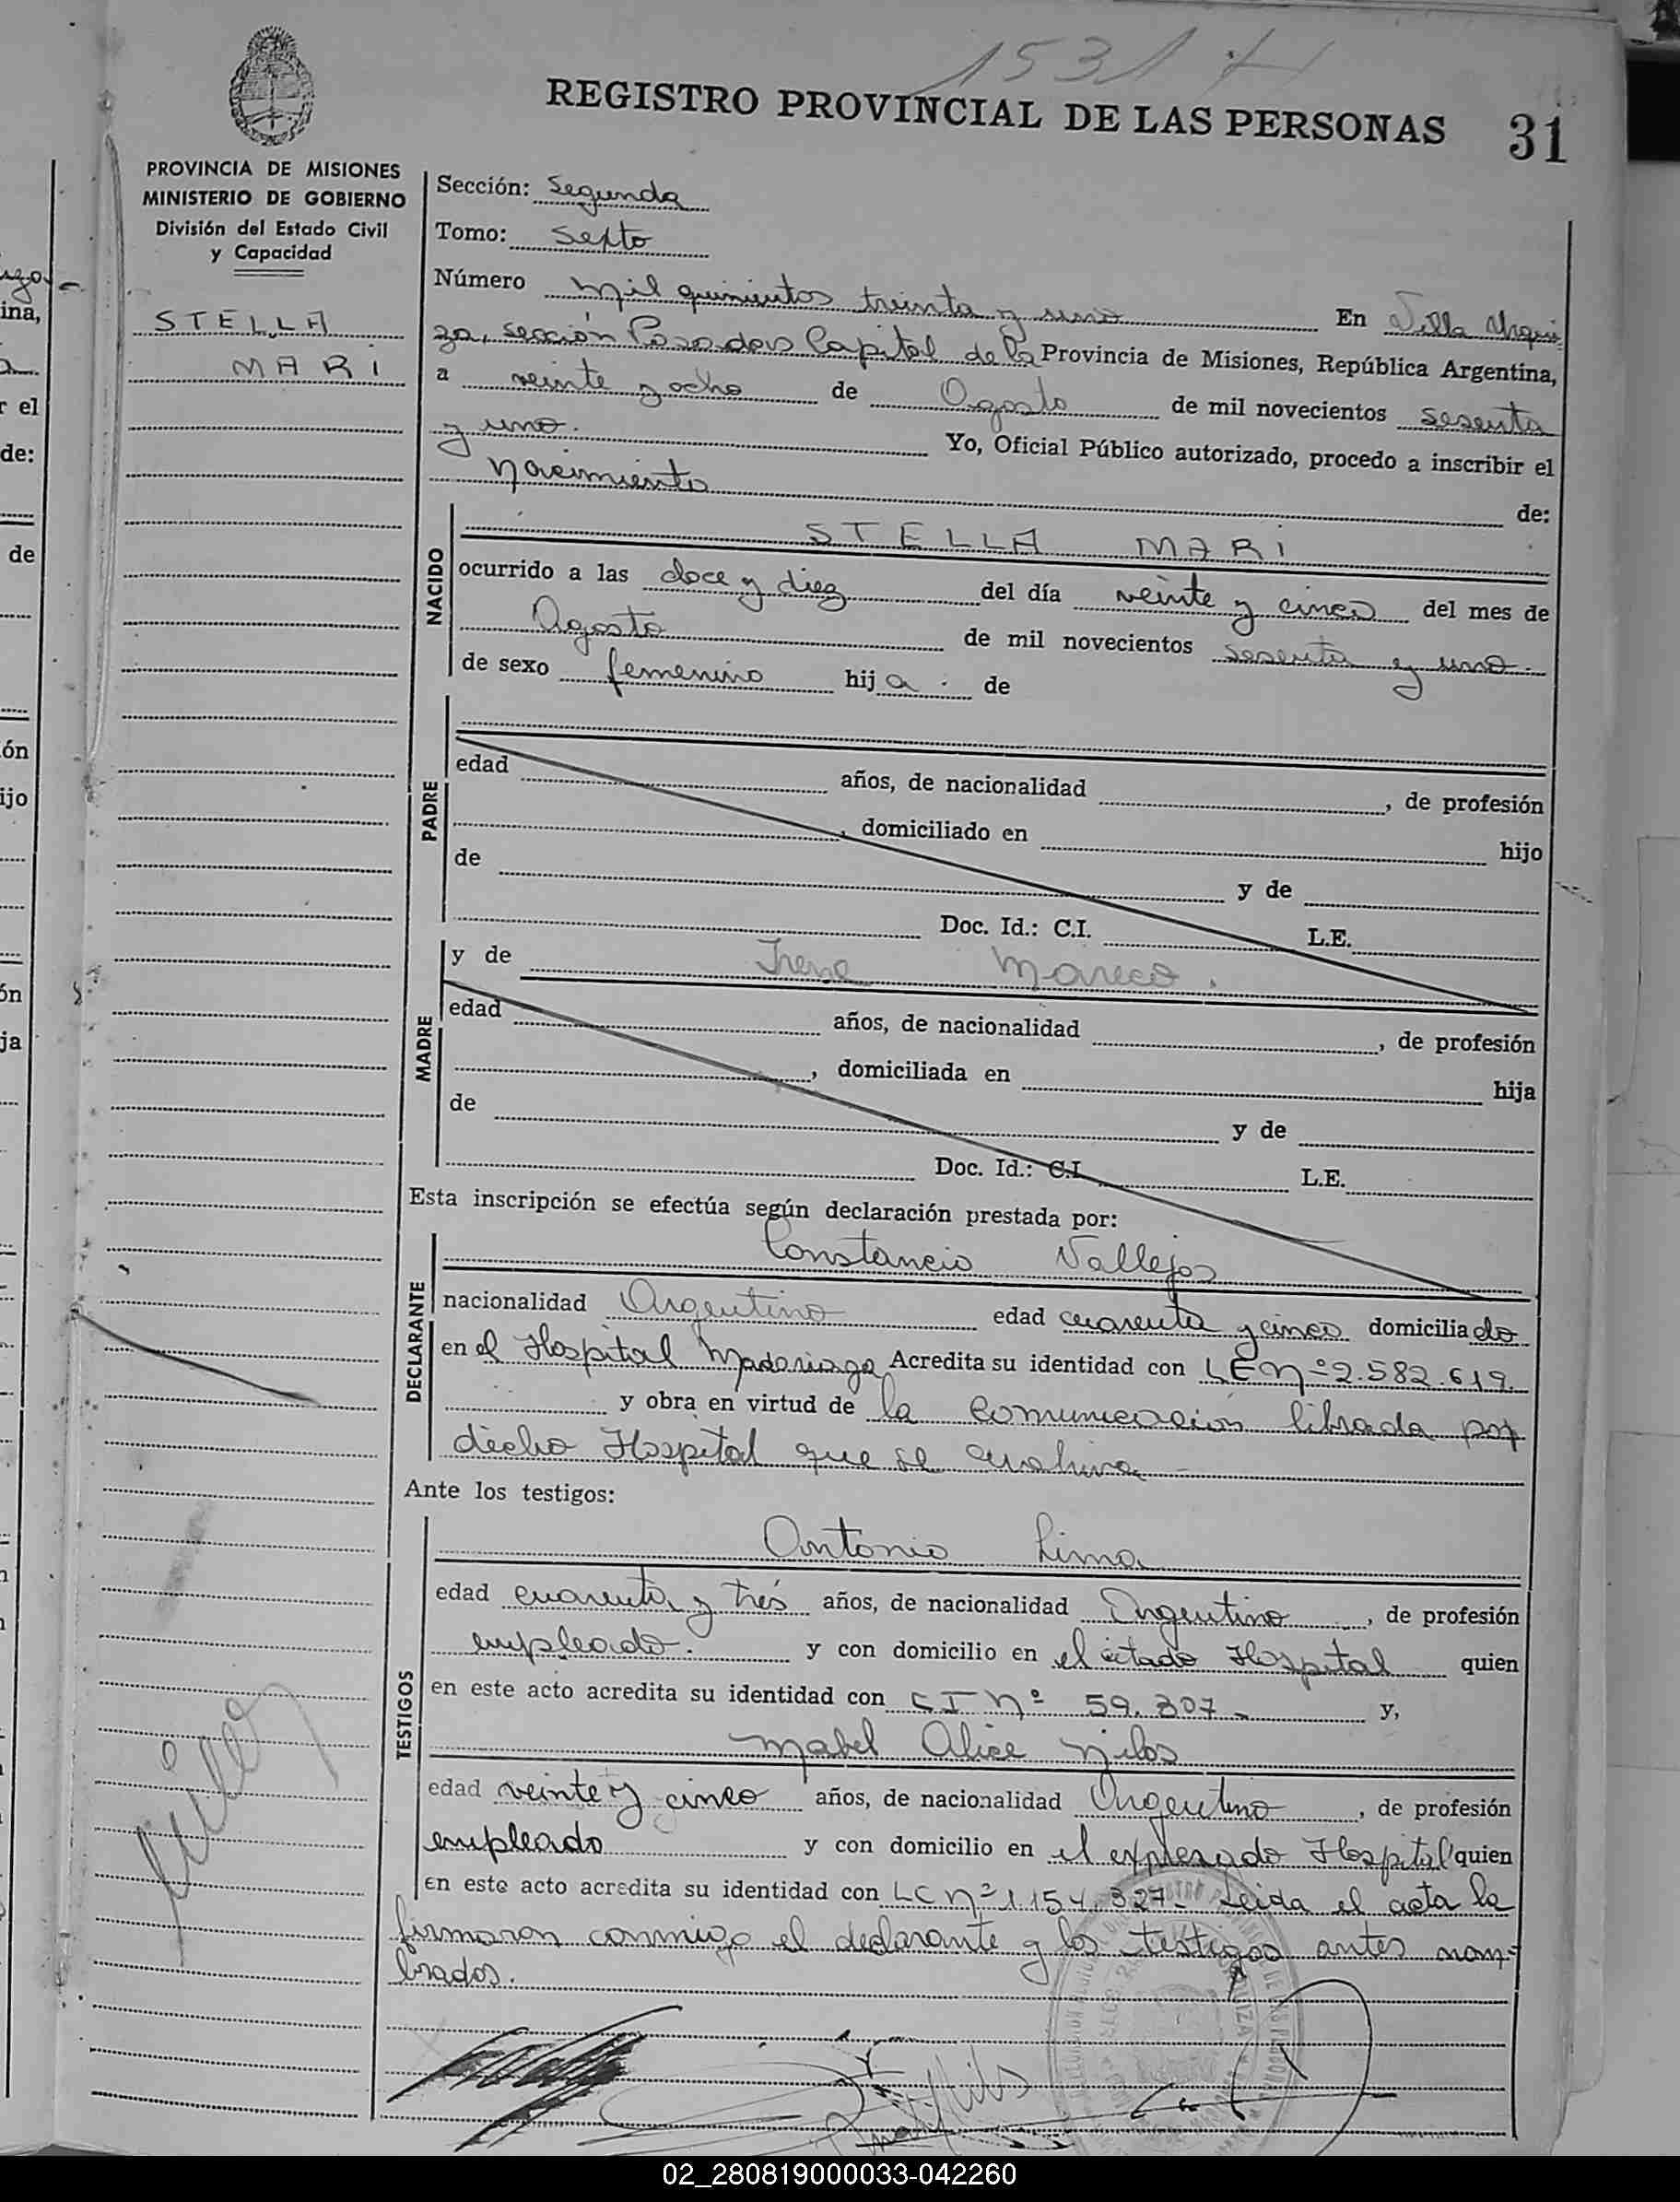 1531
REGISTRO PROVINCIAL DE LAS PERSONAS 31
PROVINCIA DE MISIONES
MINISTERIO DE GOBIERNO
División del Estado Civil
y Capacidad
STELLA
MARI
Sección: Segunda
Tomo: Sexto
Número mil quinientos treinta y uno En Villa Urqui
za, sección Posadas Capital de la Provincia de Misiones, República Argentina,
a veinte y ocho de Agosto de mil novecientos sesenta
y uno. Yo, Oficial Público autorizado, procedo a inscribir el
nacimiento de:
NACIDO
STELLA MARI
ocurrido a las doce y diez del día veinte y cinco del mes de
Agosto de mil novecientos sesenta y uno.
de sexo femenino hija de
PADRE
edad años, de nacionalidad , de profesión
, domiciliado en hijo
de y de
Doc. Id.: C.I. L.E.
MADRE
y de Irene Mareco.
edad años, de nacionalidad , de profesión
, domiciliada en hija
de y de
Doc. Id.: C.I. L.E.
Esta inscripción se efectúa según declaración prestada por:
DECLARANTE
Constancio Vallejos
nacionalidad Argentino edad cuarenta y cinco domiciliado
en el Hospital Madariaga Acredita su identidad con LE nº 2.582.619.
y obra en virtud de la comunicación librada por
dicho Hospital que se archiva
Ante los testigos:
TESTIGOS
Antonio Lima
edad cuarenta y tres años, de nacionalidad Argentino, de profesión
empleado. y con domicilio en el citado Hospital quien
en este acto acredita su identidad con CI nº 59.307- y,
Mabel Alice
edad veinte y cinco años, de nacionalidad Argentino, de profesión
empleado y con domicilio en el expresado Hospital quien
en este acto acredita su identidad con LC nº 1.154.327- Leida el acta la
firmaron conmigo el declarante y los testigos antes nom-
brados.
02_280819000033-042260